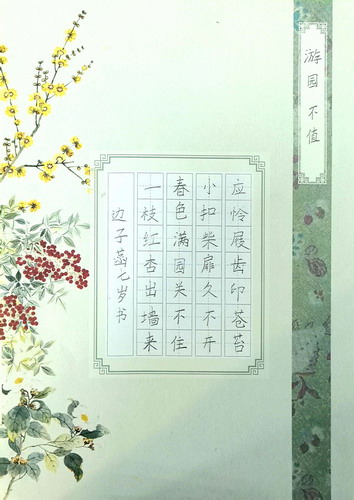 游园不值
应怜屐齿印苍苔
小扣柴扉久不开
春色满园关不住
一枝红杏出墙来
边子菡七岁书